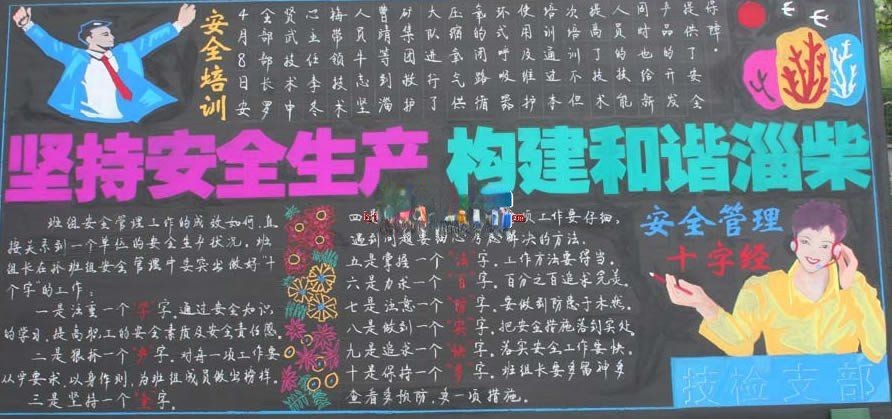 安全培训
4月8日安
全部部长罗
贤武技术中
心主任李冬
梅带领技术
人员斗志坚
曹靖等到淄
矿集团救护
大队进行了
压缩氧气供
氧的闭路循
环式呼吸器
使用及维护
培训通过
次培训不但
提高了技术
人员的技能
同时也给新
产品的开发
提供了安全
保障。
坚持安全生产 构建和谐淄柴
班组安全管理工作的成效如何,直
接关系到一个单位的安全生产状况,班
组长在抓班组安全管理中要突出做好"十
个字"的工作:
一是注重一个"学"字,通过安全知识
的学习,提高职工的安全素质及安全责任感。
二是狠抓一个"严"字,对每一项工作要
从严要求,以身作则,为班组成员做出榜样。
三是坚持一个"全"字,
四是 项工作要仔细,
遇到问题要细心考虑解决的方法。
五是掌握一个"法"字,工作方法要得当。
六是力求一个"百"字,百分之百追求完美。
七是注意一个"防"字,要做到防患于未然。
八是做到一个"实"字,把安全措施落到实处。
九是追求一个"快"字,落实安全工作要快。
十是保持一个"多"字,班组长要多留神多
查看多预防,多一项措施。
安全管理
十字经
技检支部